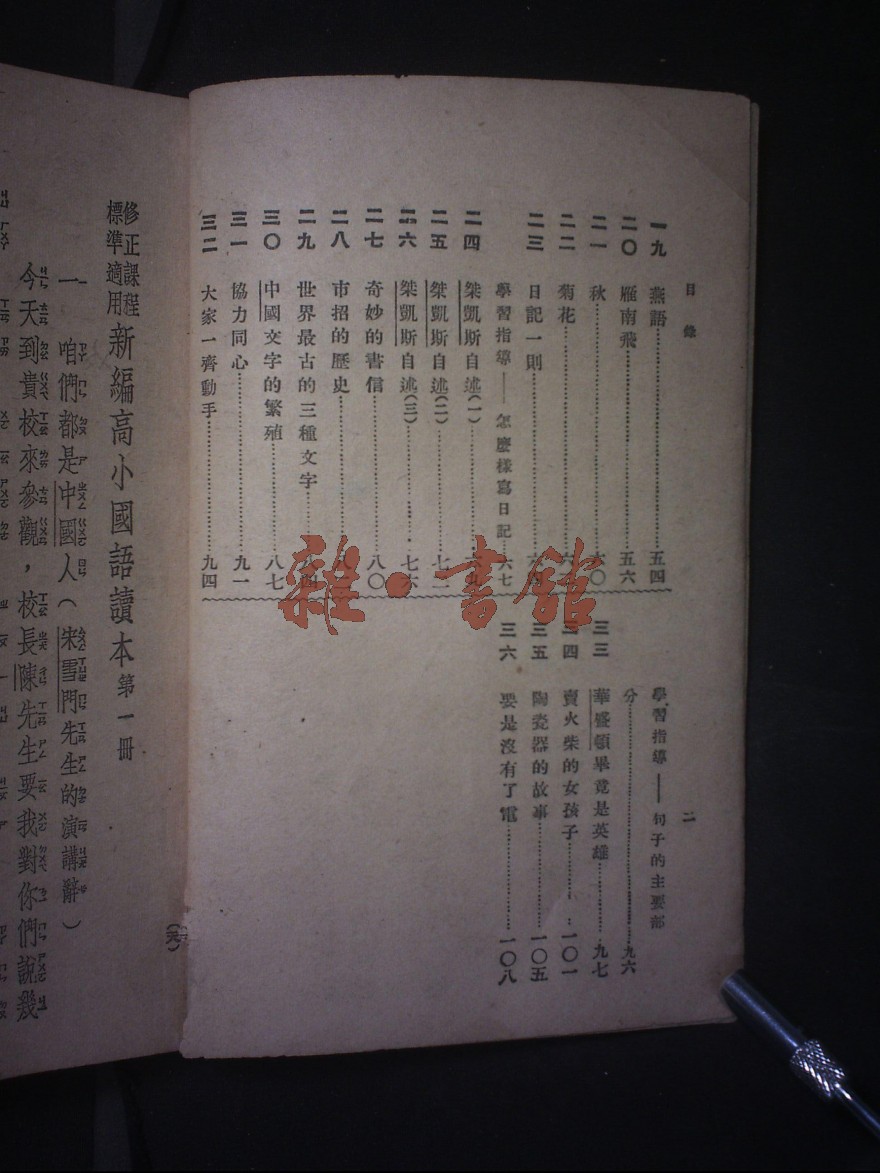 目錄
二
一九 燕語……五四
二〇 雁南飛……五六
二一 秋……六〇
二二 菊花……六
二三 日記一則……六四
學習指導——怎麼樣寫日記……六七
二四 桀凱斯自述(一)……六九
二五 桀凱斯自述(二)……七二
二六 桀凱斯自述(三)……七六
二七 奇妙的書信……八〇
二八 市招的歷史……八
二九 世界最古的三種文字……八四
三〇 中國文字的繁殖……八七
三一 協力同心……九一
三二 大家一齊動手……九四
學習指導——句子的主要部
分……九六
三三 華盛頓畢竟是英雄……九七
三四 賣火柴的女孩子……一〇一
三五 陶瓷器的故事……一〇五
三六 要是沒有了電……一〇八
雜·書館
修正課程
標準適用 新編高小國語讀本 第一冊
一 咱們都是中國人(朱雪門先生的演講辭)
今天到貴校來參觀,校長陳先生要我對你們說幾